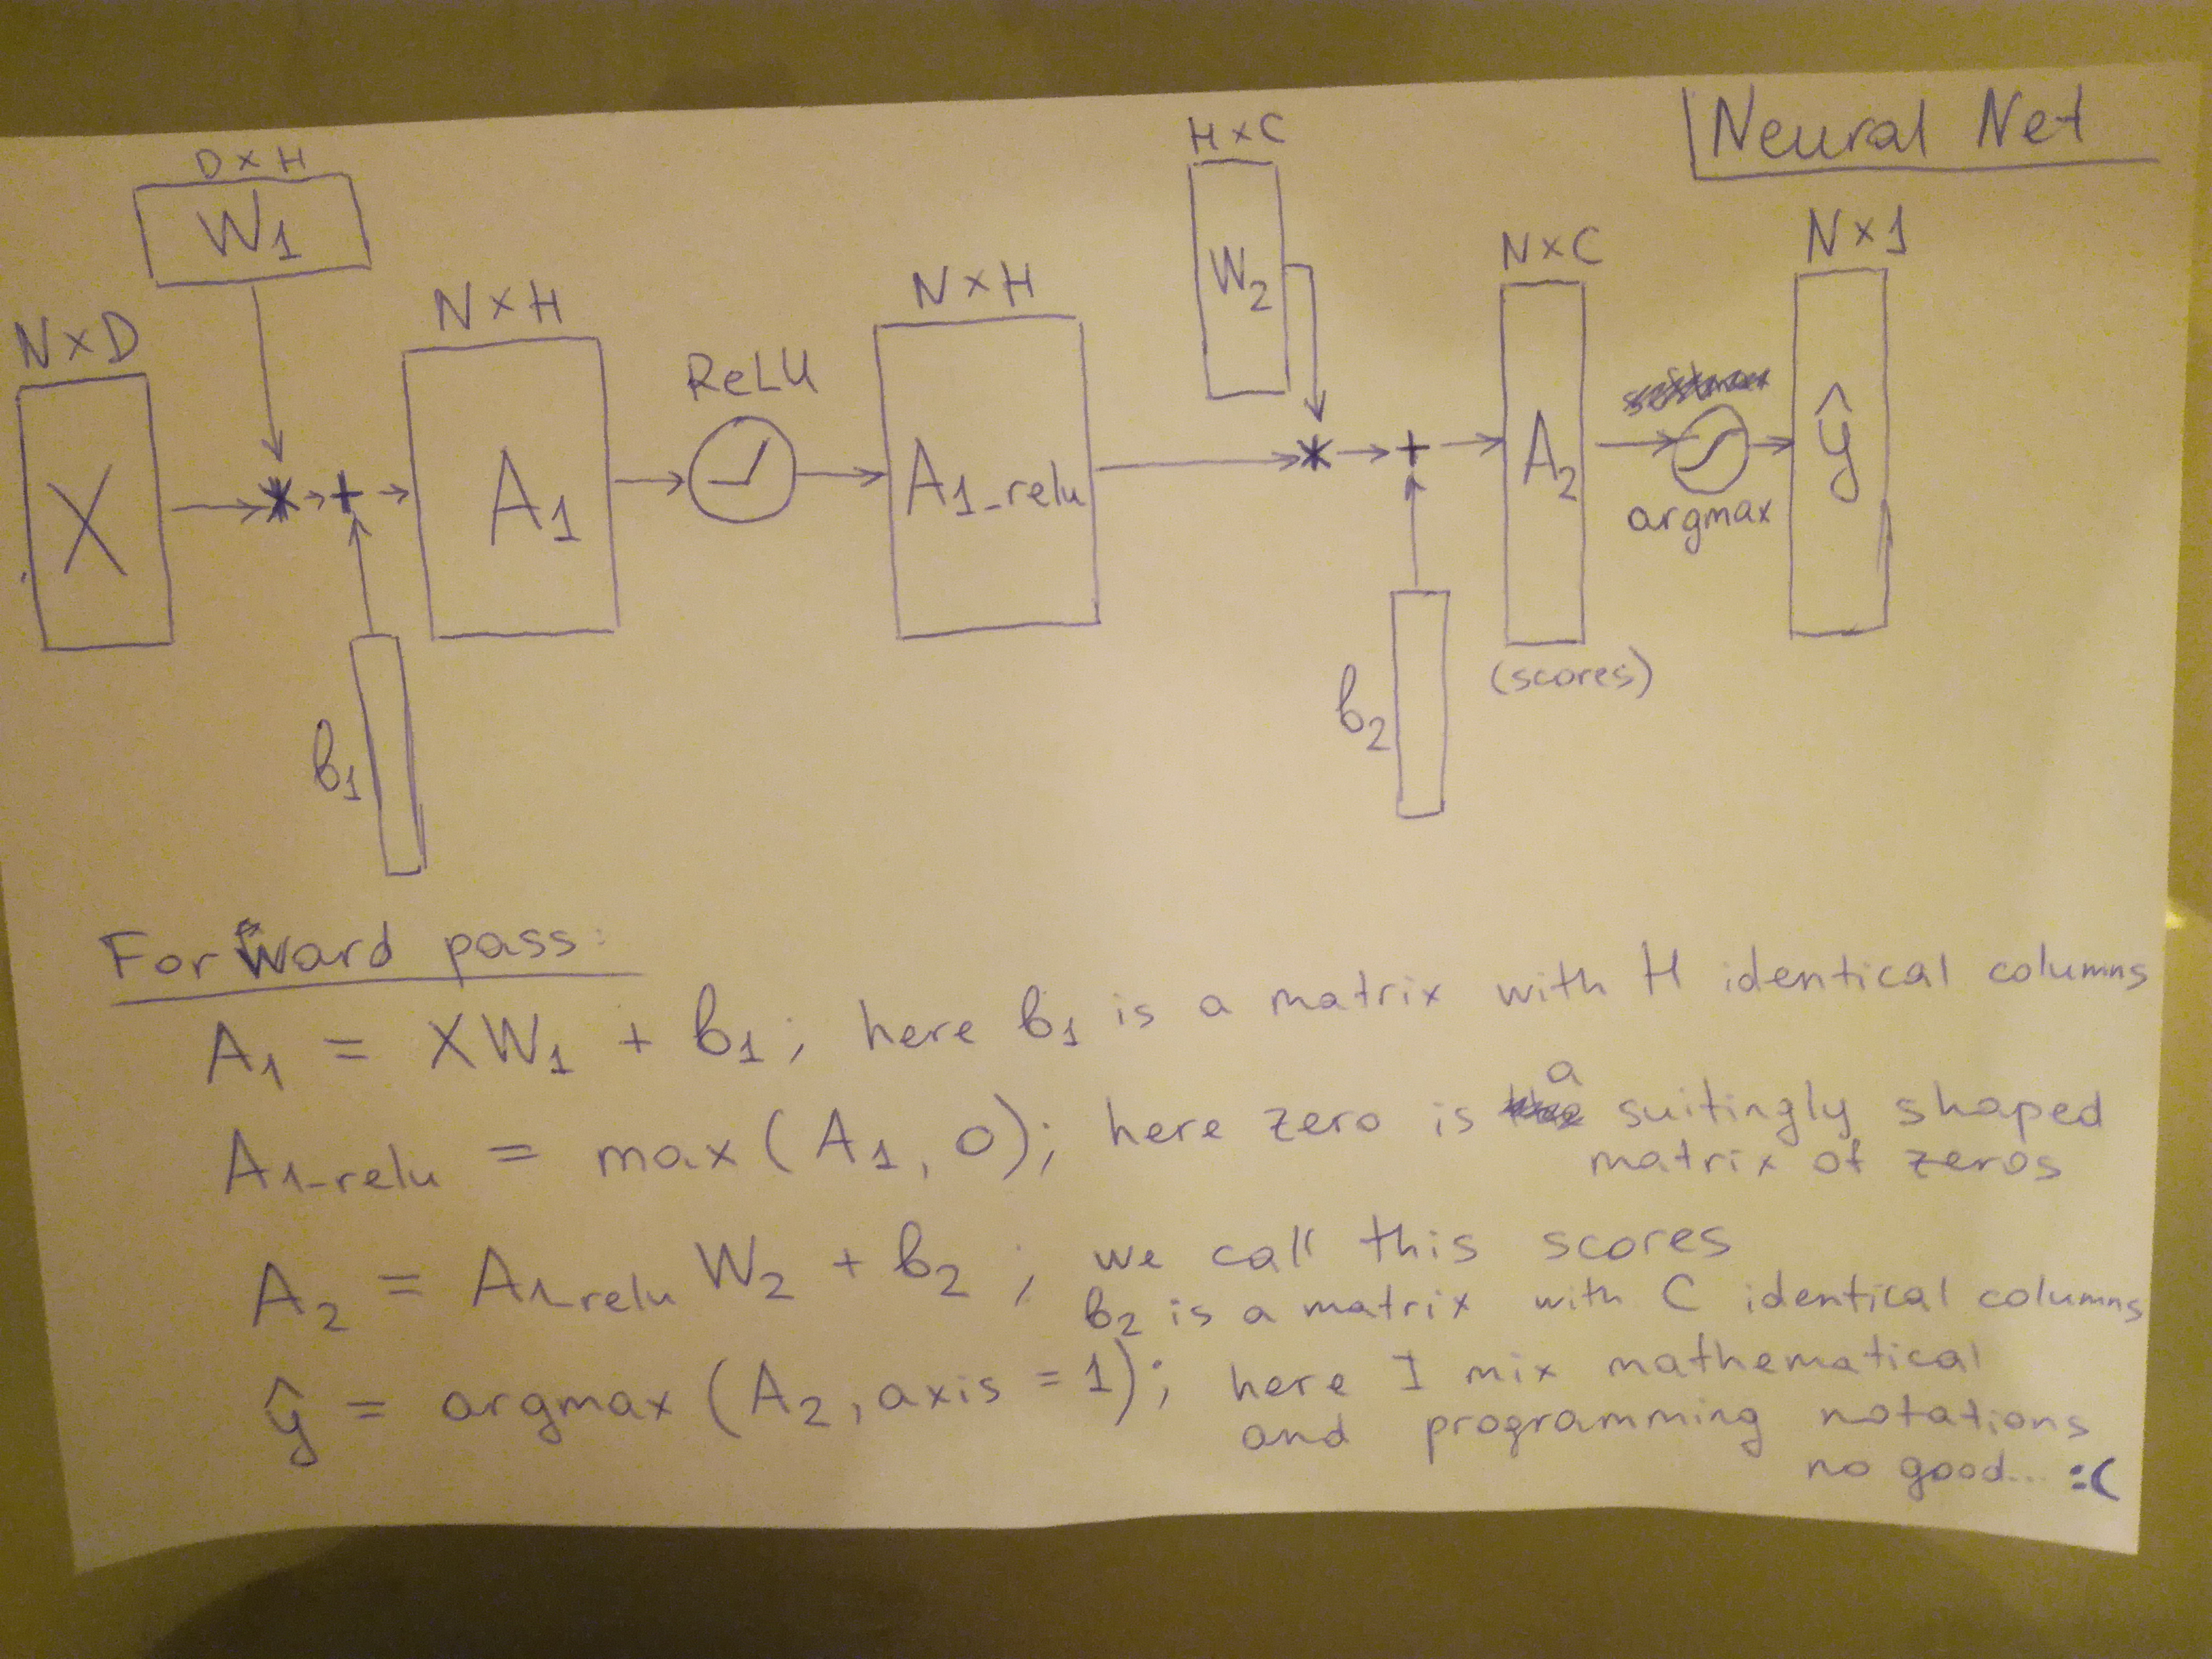 Neural Net
D×H
W₁
N×D
X
* +
b₁
N×H
A₁
ReLU
N×H
A₁_relu
H×C
W₂
* +
b₂
N×C
A₂
(scores)
argmax
N×1
ŷ
Forward pass:
A₁ = XW₁ + b₁; here b₁ is a matrix with H identical columns
A₁_relu = max(A₁, 0); here zero is a suitingly shaped
matrix of zeros
A₂ = A₁_relu W₂ + b₂ ; we call this scores
b₂ is a matrix with C identical columns
ŷ = argmax (A₂, axis = 1); here I mix mathematical
and programming notations
no good... :(